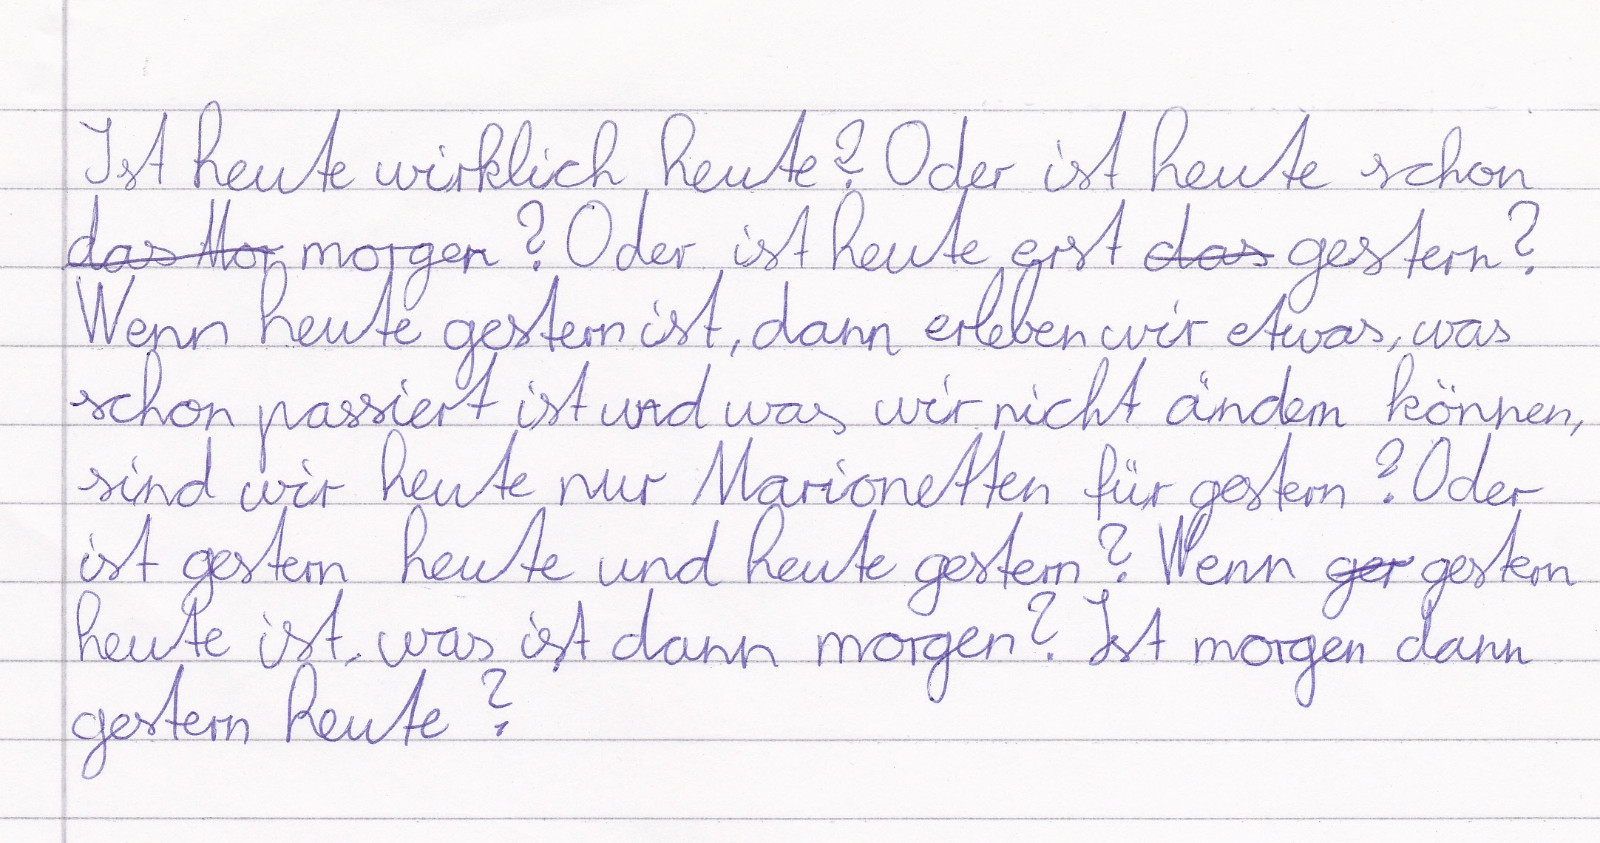 Ist heute wirklich heute? Oder ist heute schon
das Mor morgen? Oder ist heute erst das gestern?
Wenn heute gestern ist, dann erleben wir etwas, was
schon passiert ist und was wir nicht ändern können,
sind wir heute nur Marionetten für gestern? Oder
ist gestern heute und heute gestern? Wenn ger gestern
heute ist, was ist dann morgen? Ist morgen dann
gestern heute?